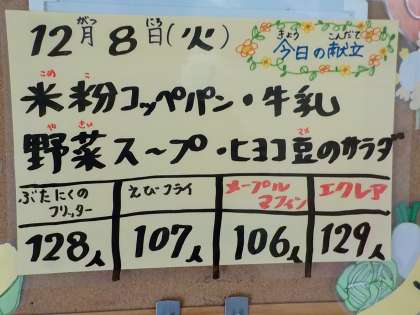 12月8日(火)
がつ にち
きょう こんだて
今日の献立
こめ こ
米粉コッペパン・牛乳
や さい まめ
野菜スープ・ヒヨコ豆のサラダ
ぶたにくのフリッター えびフライ メープルマフィン エクレア
128人 107人 106人 129人